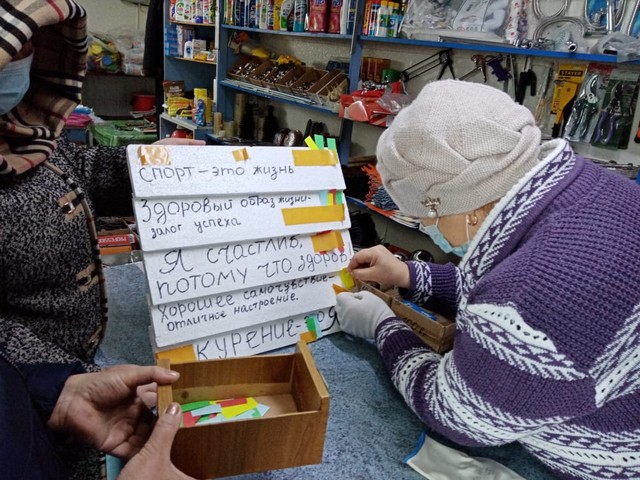 СПОРТ – это жизнь
Здоровый образ жизни-
залог успеха
Я счастлив,
потому что здоров
Хорошее самочувствие-
отличное настроение.
Курение-
STAYER